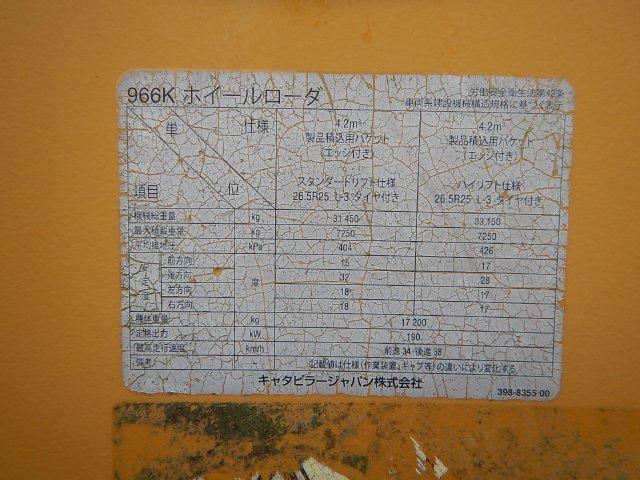 966K ホイールローダ
労働安全衛生法第42条
車両系建設機械構造規格に基づく表示
単 仕様 4.2m³ 4.2m³
製品積込用バケット 製品積込用バケット
(エッジ付き) (エッジ付き)
スタンダードリフト仕様 ハイリフト仕様
項目 位 26.5R25 L-3 タイヤ付き 26.5R25 L-3 タイヤ付き
機械総重量 kg 31 450 33 150
最大積載重量 kg 7250 7250
平均接地圧 kPa 404 426
前方向 15 17
走 後方向 度 32 28
度 左方向 18 17
右方向 18 17
機体重量 kg 17 200
定格出力 kW 190
最高走行速度 km/h 前進 34 後進 38
備考 - 記載値は仕様(作業装置、キャブ等)の違いにより変化する
キャタピラージャパン株式会社
398-8355 00